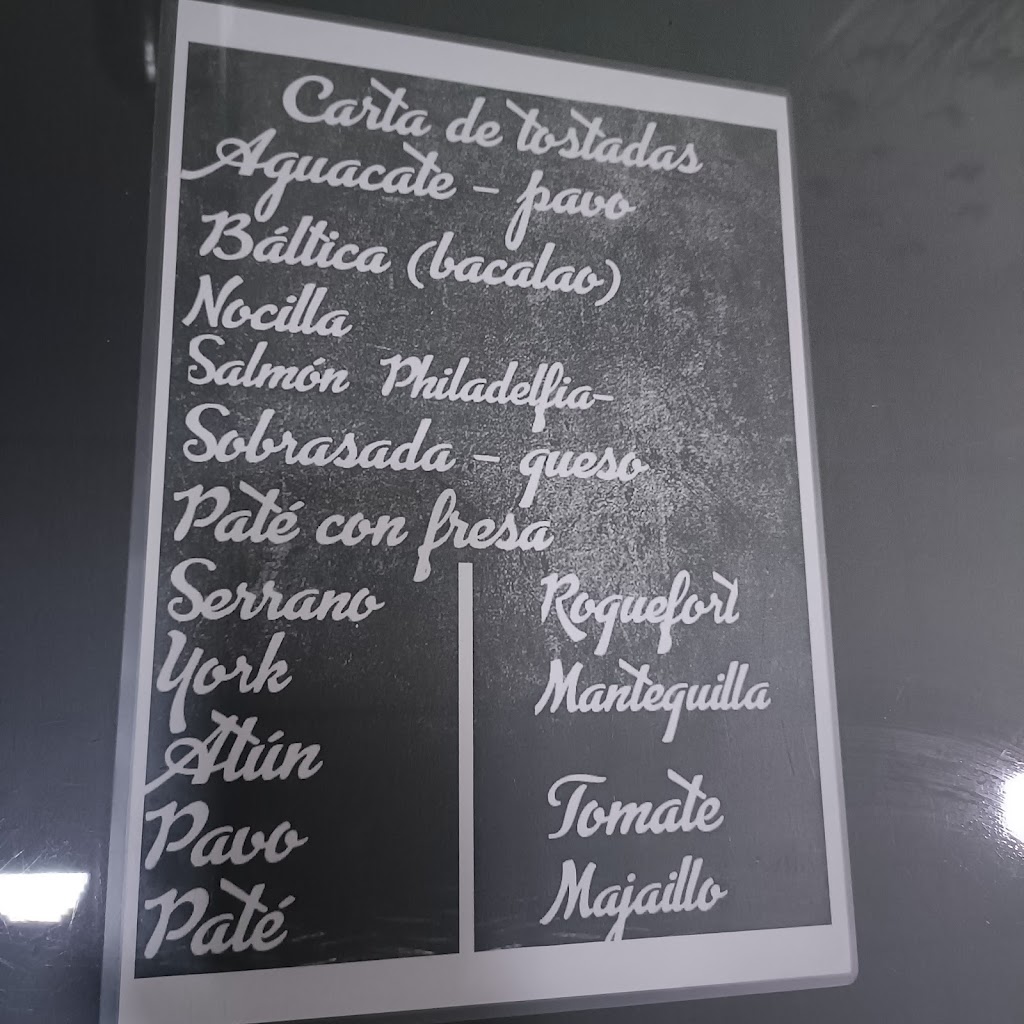 Carta de tostadas
Aguacate - pavo
Báltica (bacalao)
Nocilla
Salmón Philadelfia-
Sobrasada - queso
Paté con fresa
Serrano
York
Atún
Pavo
Paté
Roquefort
Mantequilla
Tomate
Majaillo